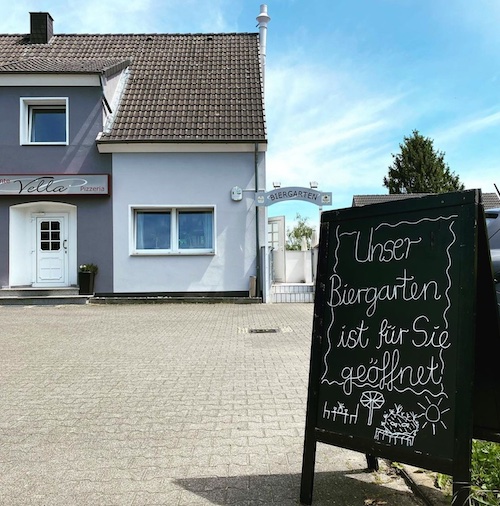 Vella
Pizzeria
BIERGARTEN
Unser
Biergarten
ist für Sie
geöffnet